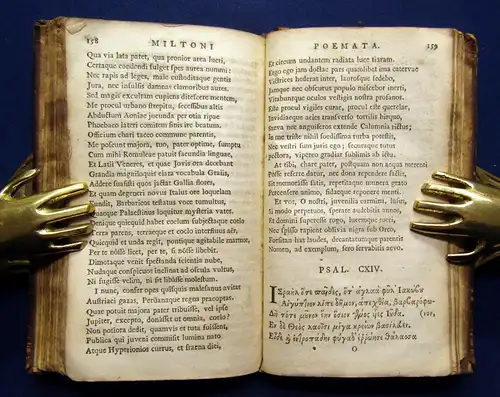 158 MILTONI
Qua via lata patet, qua pronior area lucri,
Certaque condendi fulget spes aurea nummi:
Nec rapis ad leges, male custoditaque gentis
Jura, nec insulsis damnas clamoribus aures.
Sed magis excultam cupiens ditescere mentem,
Me procul urbano strepitu, secessibus altis
Abductum Aoniæ jucunda per otia ripæ
Phœbæo lateri comitem sinis ire beatum.
Officium chari taceo commune parentis,
Me poscunt majora, tuo, pater optime, sumptu
Cum mihi Romuleæ patuit facundia linguæ,
Et Latii Veneres, et quæ Jovis ora decebant
Grandia magniloquis elata vocabula Graiis,
Addere suasisti quos jactat Gallia flores,
Et quam degeneri novus Italus ore loquelam
Fundit, Barbaricos testatus voce tumultus,
Quæque Palæstinus loquitur mysteria vates.
Denique quicquid habet cœlum, subjectaque cœlo
Terra parens, terræque et cœlo interfluus aër,
Quicquid et unda tegit, pontique agitabile marmor,
Per te nosse licet, per te, si nosse libebit.
Dimotaque venit spectanda scientia nube,
Nudaque conspicuos inclinat ad oscula vultus,
Ni fugisse velim, ni sit libasse molestum.
I nunc, confer opes quisquis malesanus avitas
Austriaci gazas, Perüanaque regna præoptas.
Quæ potuit majora pater tribuisse, vel ipse
Jupiter, excepto, donâsset ut omnia, cœlo?
Non potiora dedit, quamvis et tuta fuissent,
Publica qui juveni commisit lumina nato
Atque Hyperionios currus, et fræna diei,
POEMATA. 159
Et circum undantem radiata luce tiaram.
Ergo ego jam doctæ pars quamlibet ima catervæ
Victrices hederas inter, laurosque sedebo,
Jamque nec obscurus populo miscebor inerti,
Vitabuntque oculos vestigia nostra profanos.
Este procul vigiles curæ, procul este querelæ,
Invidiæque acies transverso tortilis hirquo,
Sæva nec anguiferos extende Calumnia rictus;
In me triste nihil fœdissima turba potestis,
Nec vestri sum juris ego; securaque tutus
Pectora, vipereo gradiar sublimis ab ictu.
At tibi, chare pater, postquam non æqua merenti
Posse referre datur, nec dona rependere factis,
Sit memorâsse satis, repetitaque munera grato
Percensere animo, fidæque reponere menti.
Et vos, O nostri, juvenilia carmina, lusus,
Si modo perpetuos, sperare audebitis annos,
Et domini superesse rogo, lucemque tueri,
Nec spisso rapient oblivia nigra sub Orco,
Forsitan has laudes, decantatumque parentis
Nomen, ad exemplum, sero servabitis ævo.
PSAL. CXIV.
O